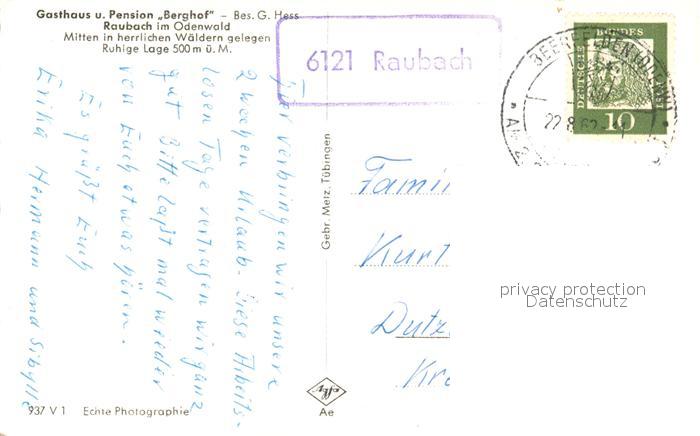 Gasthaus u. Pension „Berghof" – Bes. G. Hess
Raubach im Odenwald
Mitten in herrlichen Wäldern gelegen
Ruhige Lage 500 m ü. M.
6121 Raubach
BEERFELDEN
22.8.62
DEUTSCHE
BUNDES
10
Hier verbringen wir unsere
2 Wochen Urlaub. Diese Arbeits-
losen Tage vertragen wir ganz
gut. Bitte laßt mal wieder
von Euch etwas hören.
Es grüßt Euch
Erika Hermann und Sibylle
Gebr. Metz, Tübingen
Famil
Kurt
Dutz
Kr
privacy protection
Datenschutz
Agfa
Ae
937 V 1 Echte Photographie